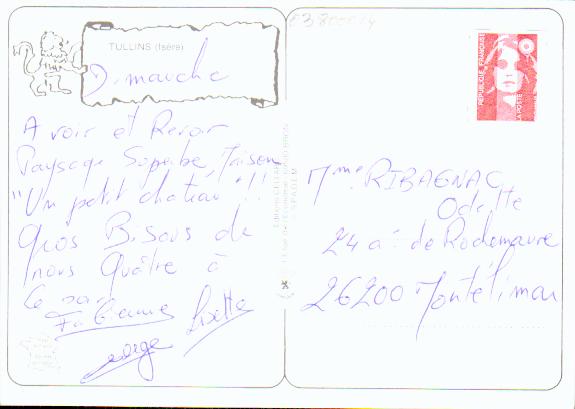 F3800014
TULLINS (Isère)
Dimanche
A voir et Revoir
Paysage Superbe, Maison
"Un petit chateau"!!
Gros Bisous de
nous Quatre à
Ce soir
Fabienne Lisette
RÉPUBLIQUE FRANÇAISE
LA POSTE
Mme RIBAGNAC
Odette
24 a: de Rochemaure
26200 Montélimar